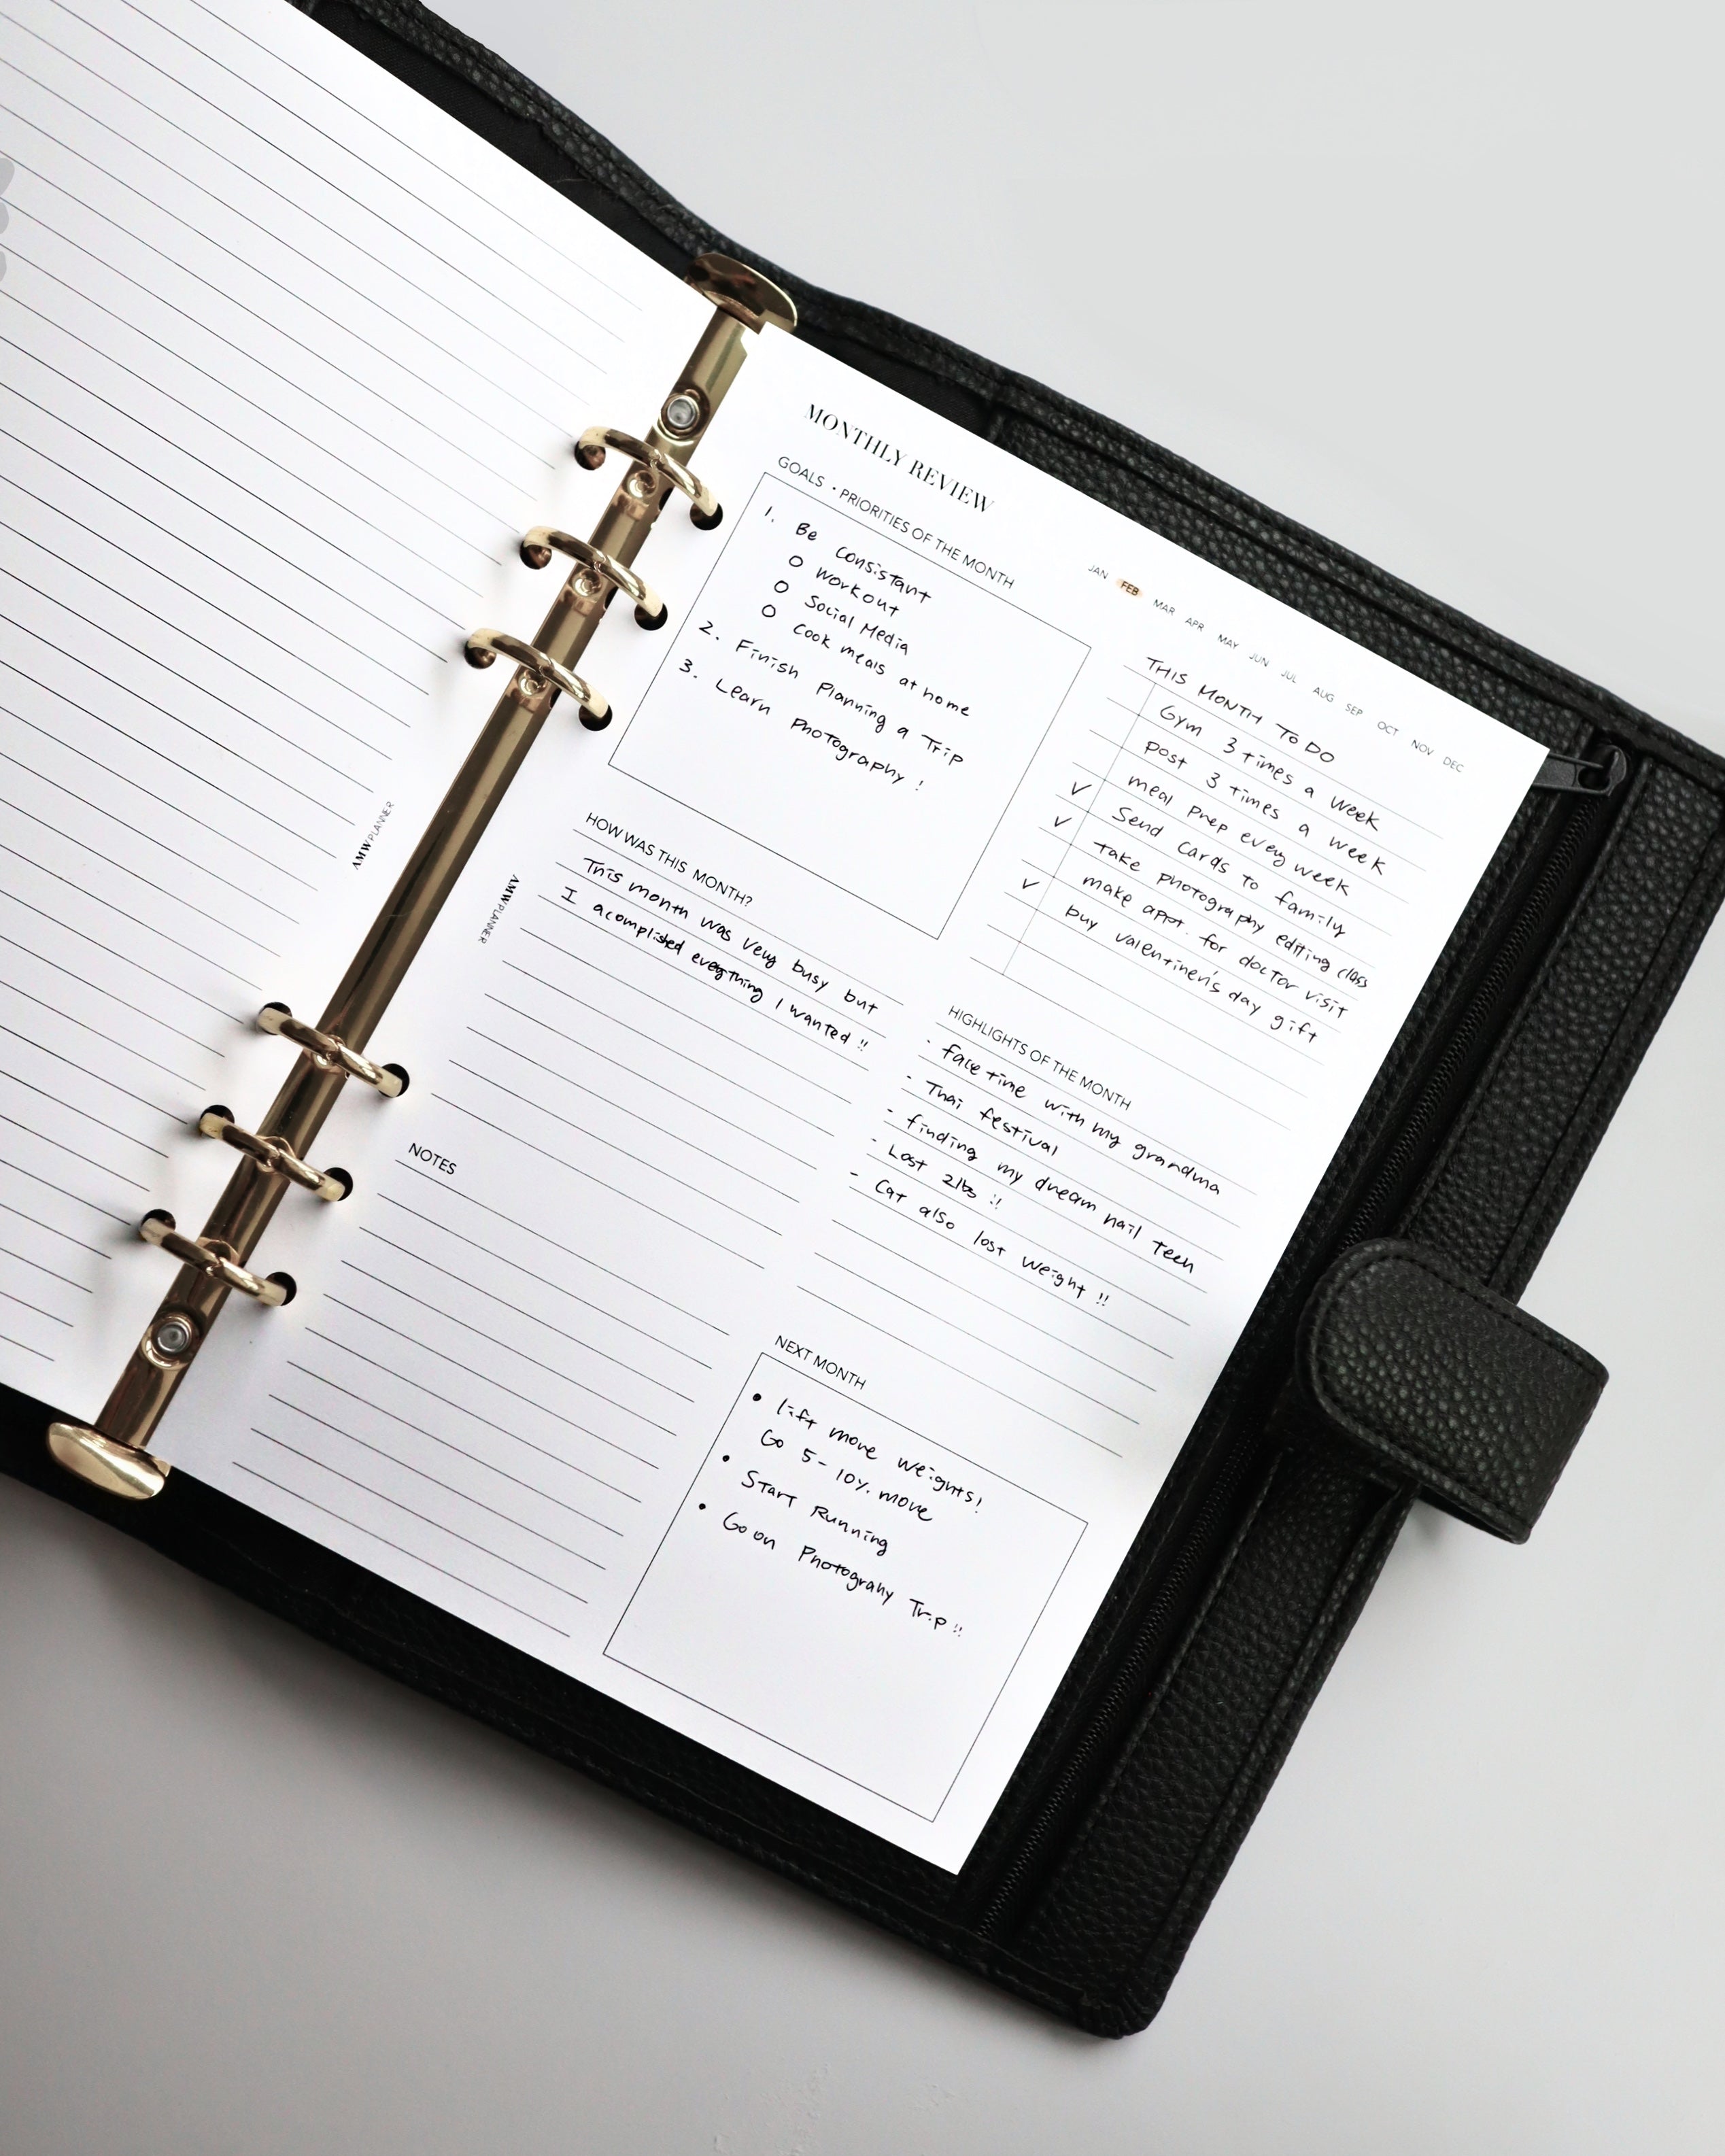 MONTHLY REVIEW
JAN FEB MAR APR MAY JUN JUL AUG SEP OCT NOV DEC
GOALS · PRIORITIES OF THE MONTH
1. Be Consistant
O Workout
O Social Media
O Cook meals at home
2. Finish Planning a Trip
3. Learn Photography !
THIS MONTH TO DO
Gym 3 times a week
post 3 times a week
meal prep every week
✓ Send cards to family
✓ take photography editing class
make appt. for doctor visit
✓ buy valentinen's day gift
HOW WAS THIS MONTH?
This month was very busy but
I acomplished everything I wanted !!
HIGHLIGHTS OF THE MONTH
- face time with my grandma
- Thai festival
- finding my dream nail tech
- Lost 2lbs !!
- Cat also lost weight !!
NOTES
NEXT MONTH
• lift more weights!
Go 5-10% more
• Start Running
• Go on Photograhy Trip !!
AMWPLANNER
AMWPLANNER